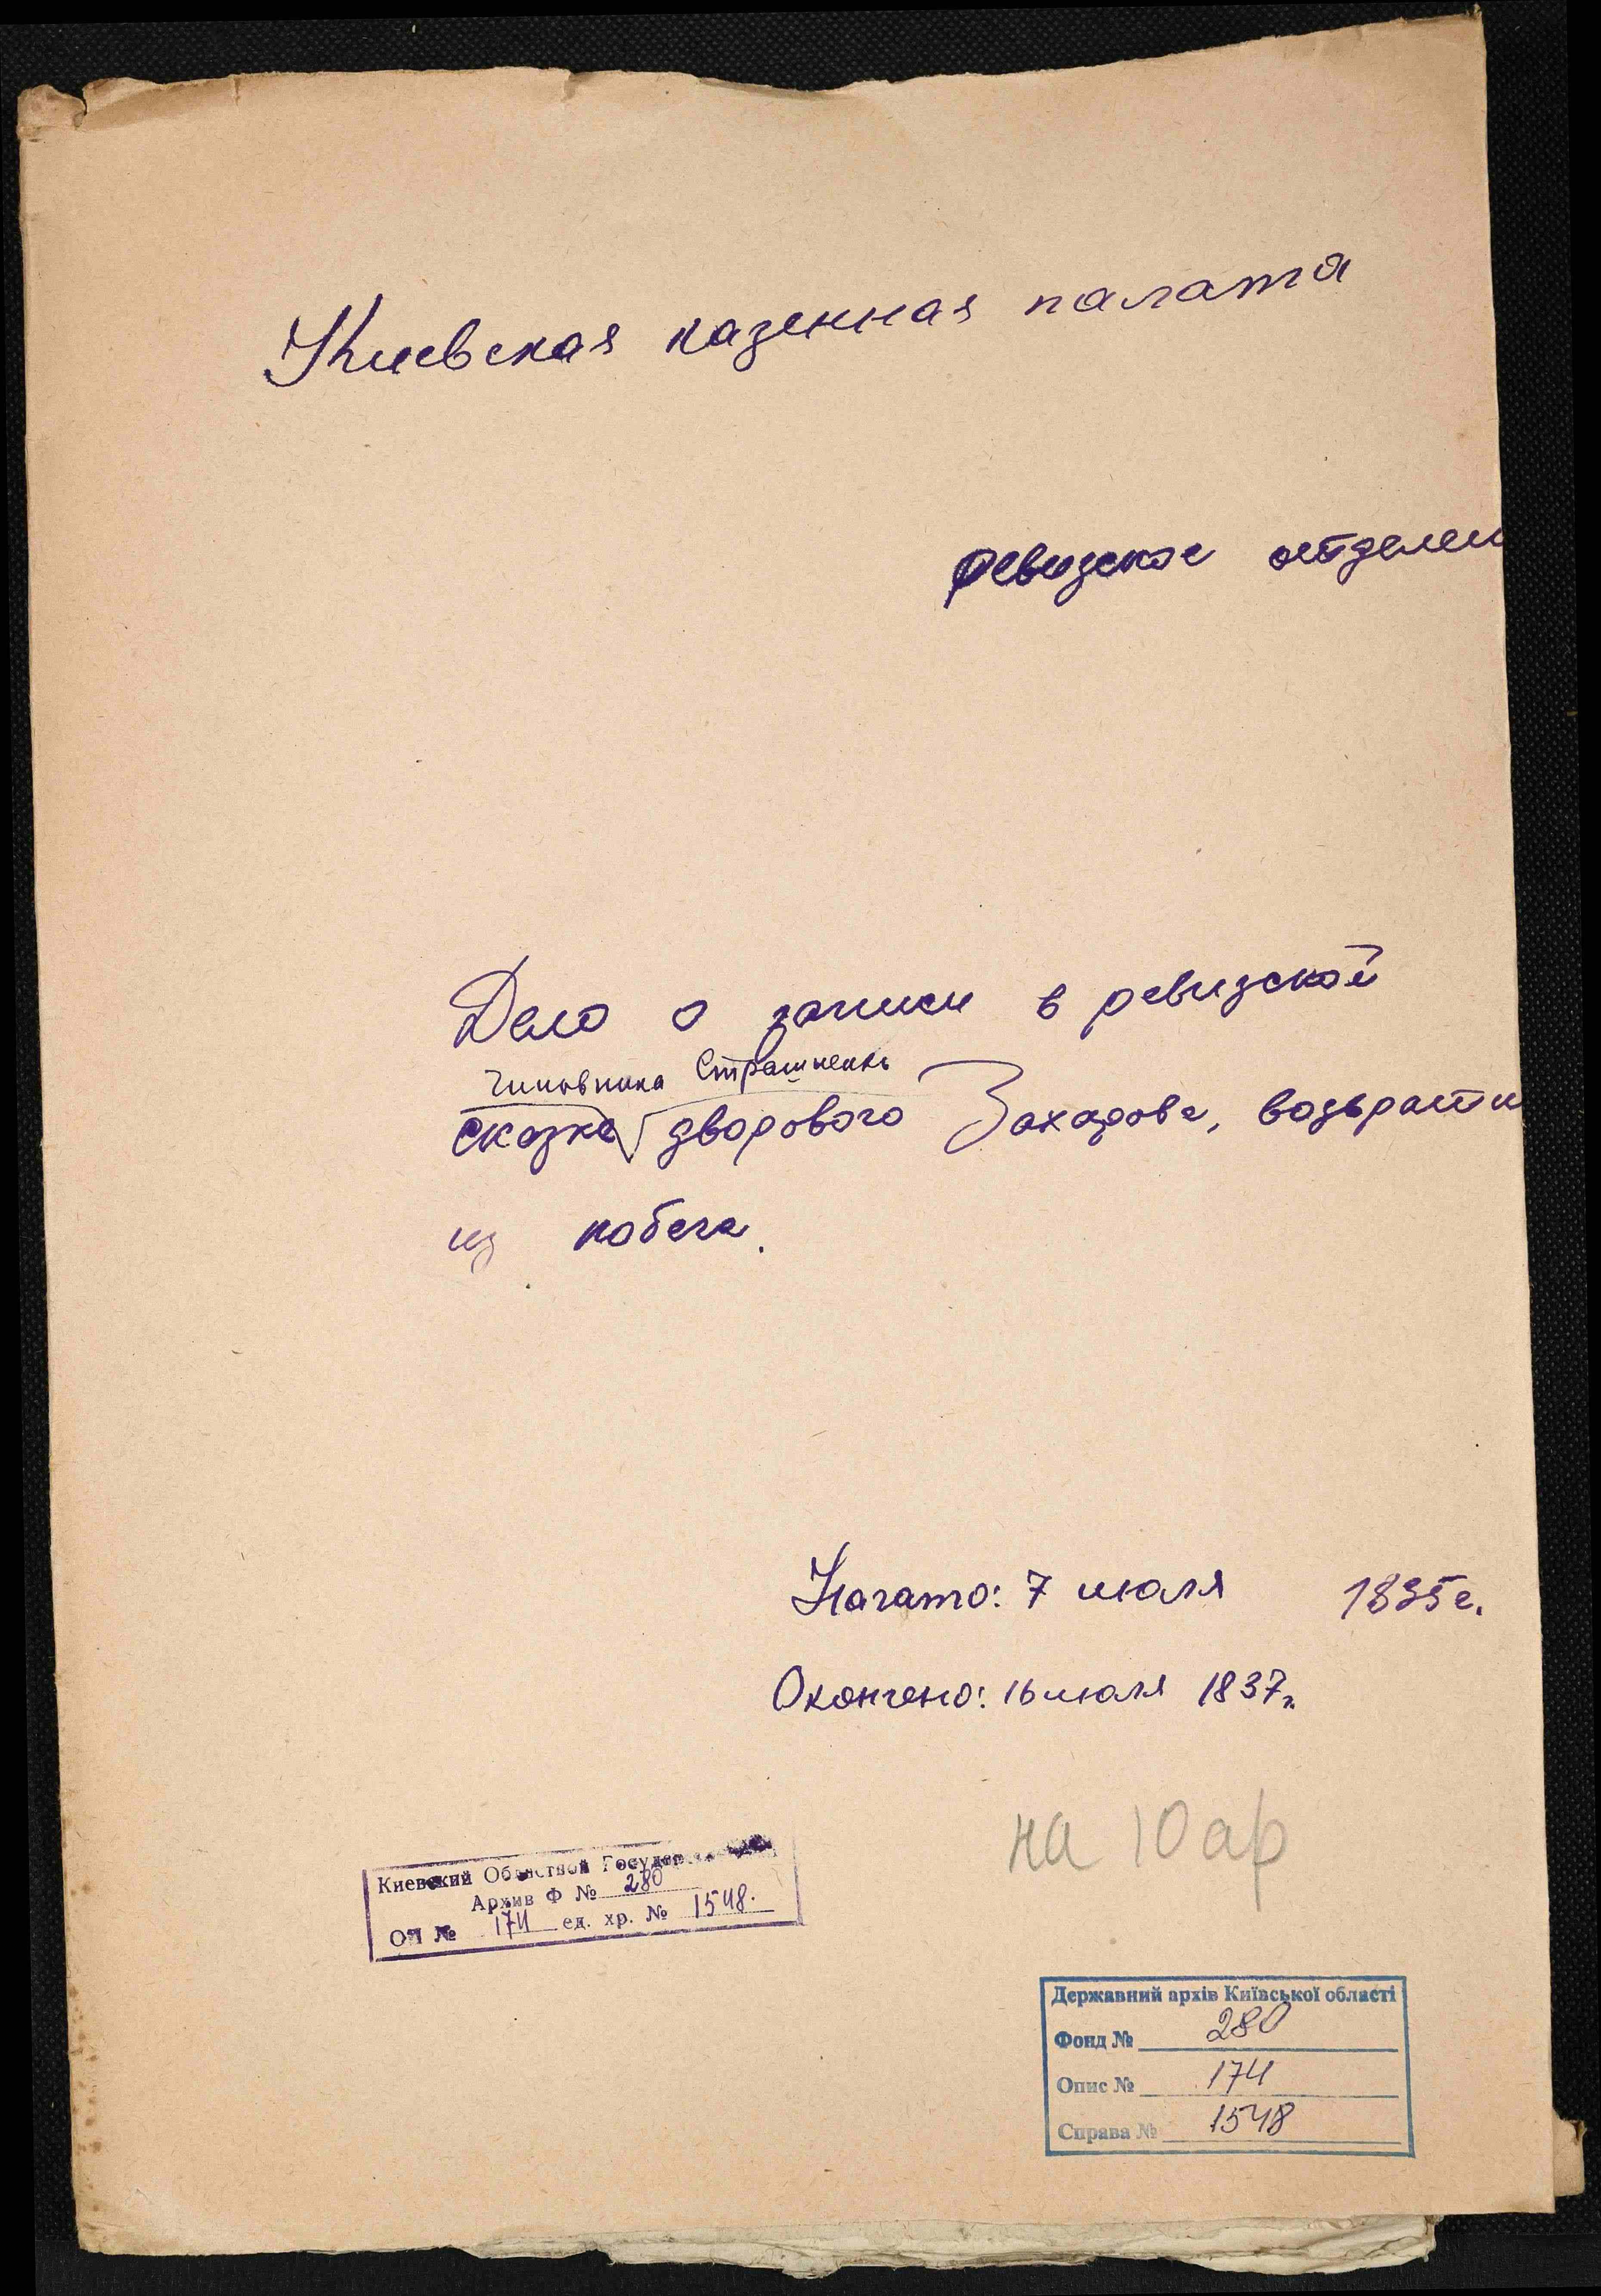 Киевская казенная палата
ревизское отделен
Дело о записи в ревизской
чиновника Страшненко
сказке дворового Захарова, возврати
из побега.
Начато: 7 июля 1835 г.
Окончено: 16 июля 1837 г.
на 10 ар
Киевский Областной Государ
Архив Ф № 280
ОП № 174 ед. хр. № 1548.
Державний архів Київської області
Фонд № 280
Опис № 174
Справа № 1548